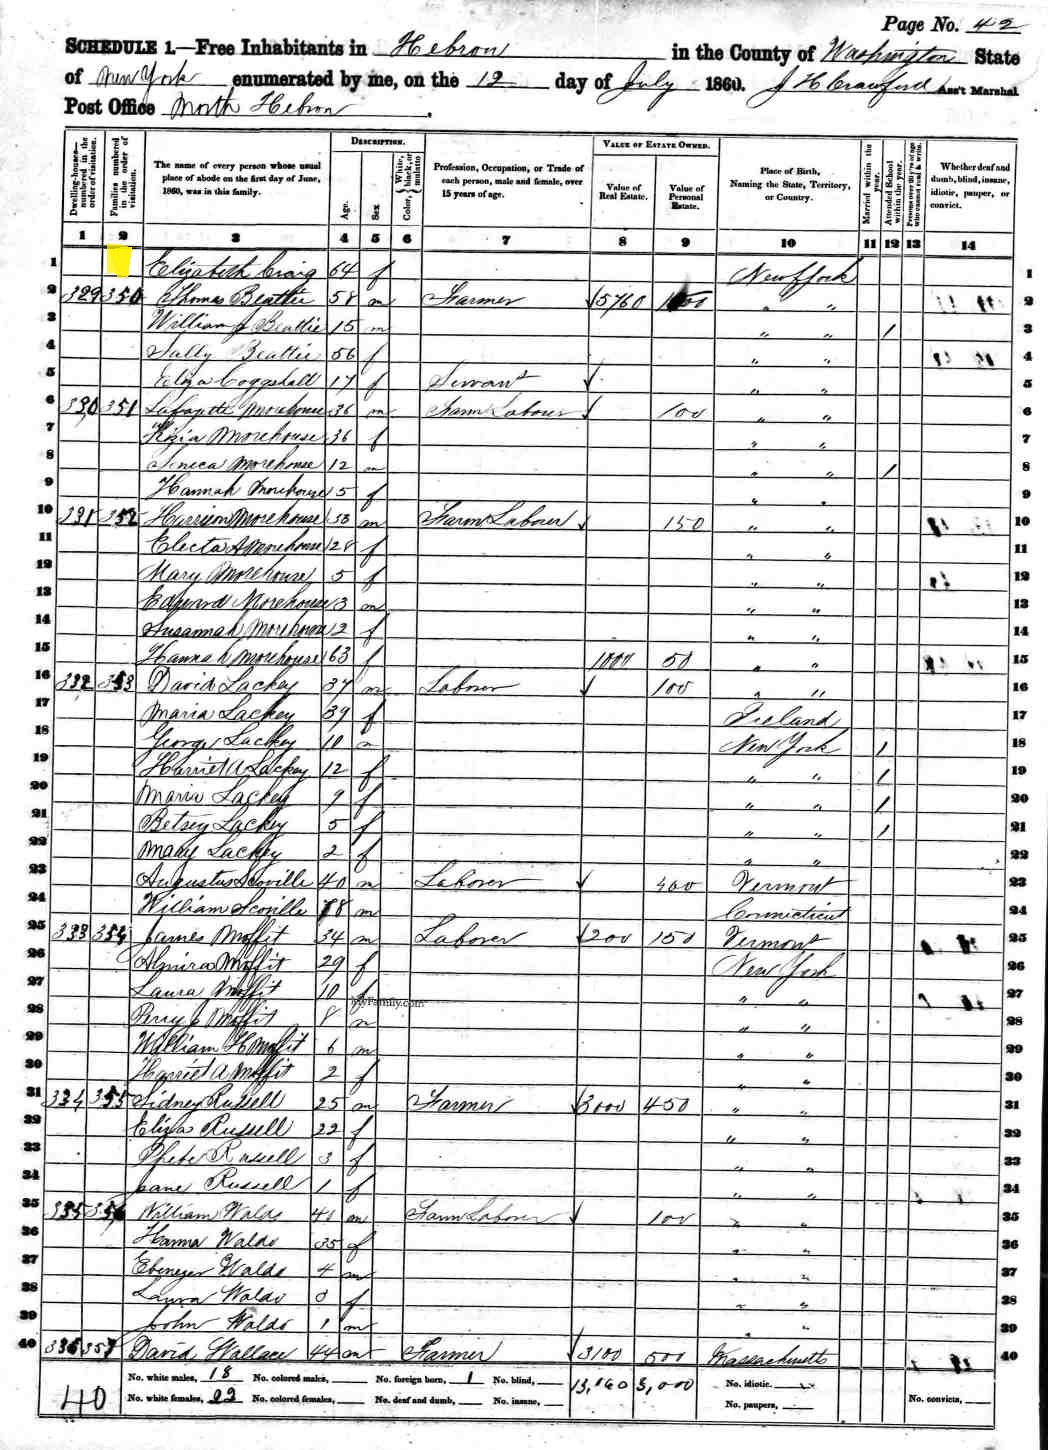 Page No. 42
SCHEDULE 1.—Free Inhabitants in Hebron in the County of Washington State
of New York enumerated by me, on the 12 day of July 1860. J H Crawford Ass't Marshal
Post Office North Hebron.
Dwelling-houses—numbered in the order of visitation. Families numbered in the order of visitation. The name of every person whose usual place of abode on the first day of June, 1860, was in this family. DESCRIPTION. Age. Sex Color, {White, black, or mulatto Profession, Occupation, or Trade of each person, male and female, over 15 years of age. VALUE OF ESTATE OWNED. Value of Real Estate. Value of Personal Estate. Place of Birth, Naming the State, Territory, or Country. Married within the year. Attended School within the year. Persons over 20 y'rs of age who cannot read & write. Whether deaf and dumb, blind, insane, idiotic, pauper, or convict.
1 2 3 4 5 6 7 8 9 10 11 12 13 14
1 Elizabeth Craig 64 f New York 1
2 329 350 Thomas Beattie 58 m Farmer 5760 " " 2
3 William J Beattie 15 m " " / 3
4 Sally Beattie 56 f " " 4
5 Eliza Coggshall 17 f Servant " " 5
6 330 351 Lafayette Morehouse 36 m Farm Laborer 100 " " 6
7 Morehouse 36 f " " 7
8 Seneca Morehouse 12 m " " / 8
9 Hannah Morehouse 5 f " " 9
10 331 352 Harrison Morehouse 33 m Farm Laborer 150 " " 10
11 Electa A Morehouse 28 f " " 11
12 Mary Morehouse 5 f " " 12
13 Edward Morehouse 3 m " " 13
14 Susannah Morehouse 2 f " " 14
15 Hannah Morehouse 63 f 1000 50 " " 15
16 332 353 David Lackey 37 m Laborer 100 " " 16
17 Maria Lackey 39 f Ireland 17
18 George Lackey 10 m New York / 18
19 Harriet A Lackey 12 f " " / 19
20 Maria Lackey 9 f " " / 20
21 Betsey Lackey 5 f " " / 21
22 Mary Lackey 2 f " " 22
23 Augustus Scoville 40 m Laborer Vermont 23
24 William Scoville m Connecticut 24
25 333 354 James Moffit 34 m Laborer 200 150 Vermont 25
26 Almira Moffit 29 f New York 26
27 Laura Moffit 10 f " " 27
MyFamily.com
28 Perry Moffit 8 m " " 28
29 William H Moffit 6 m " " 29
30 Harriet A Moffit 2 f " " 30
31 334 355 Sidney Russell 25 m Farmer 3000 450 " " 31
32 Eliza Russell 22 f " " 32
33 Phebe Russell 3 f " " 33
34 Jane Russell 1 f " " 34
35 335 356 William Waldo 41 m Farm Laborer 100 " " 35
36 Hanna Waldo 35 f " " 36
37 Ebenezer Waldo 4 m " " 37
38 Laura Waldo f " " 38
39 John Waldo 1 m " " 39
40 336 357 David Wallace 44 m Farmer 3100 500 Massachusetts 40
No. white males, 18 No. colored males, No. foreign born, 1 No. blind, 3,000 No. idiotic.
40 No. white females, 22 No. colored females, No. deaf and dumb, No. insane, No. paupers, No. convicts,